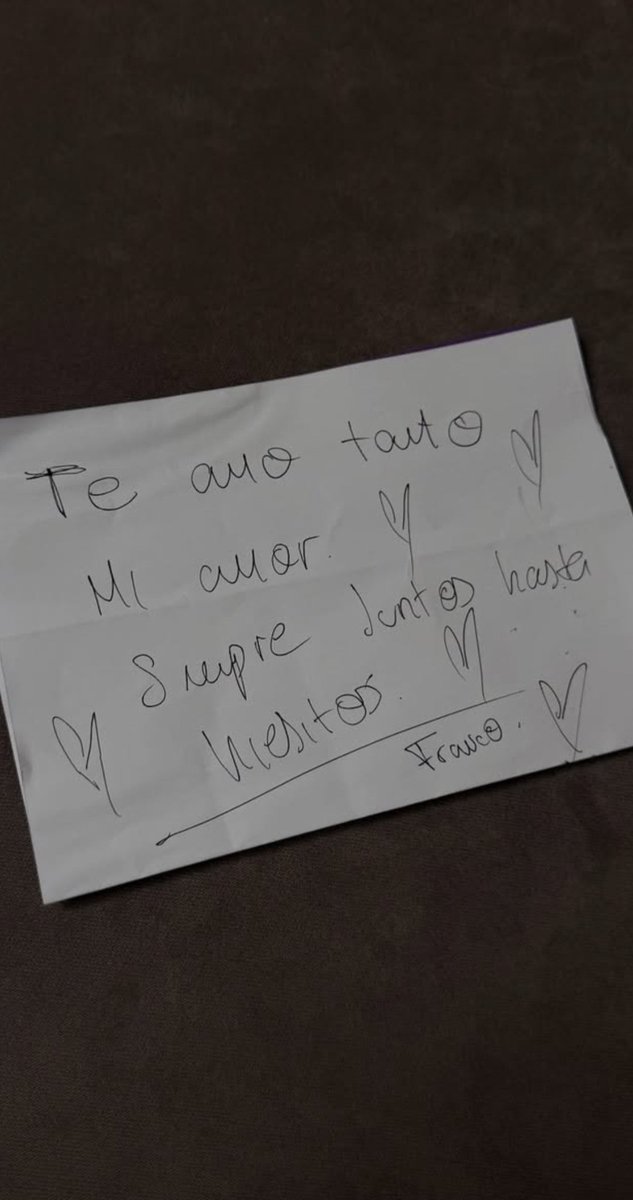 Te amo tanto
Mi amor.
Siempre Juntos hasta
viejitos.
Franco.